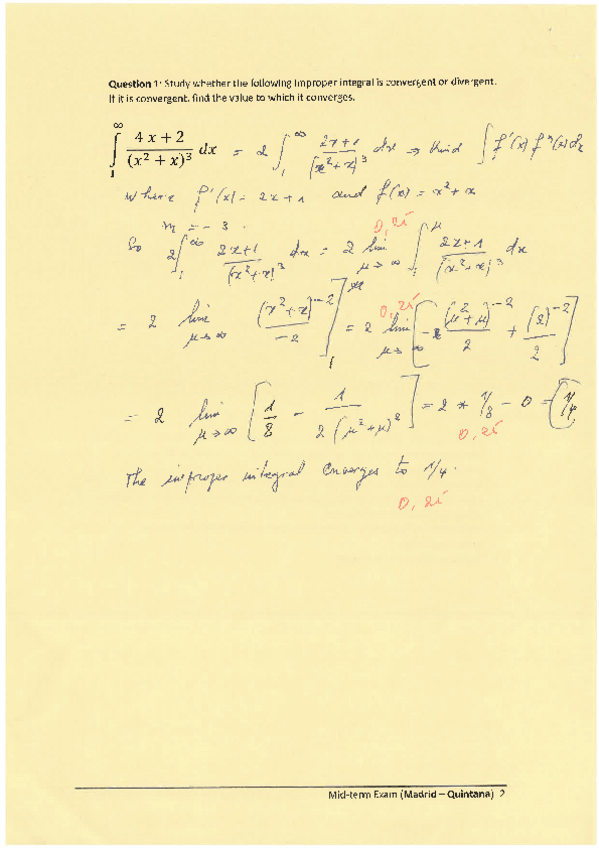 Question 1: Study whether the following improper integral is convergent or divergent.
If it is convergent, find the value to which it converges.
∫₁^∞ (4x+2)/(x²+x)³ dx = 2 ∫₁^∞ (2x+1)/(x²+x)³ dx → kind ∫ f'(x) fⁿ(x) dx
where f'(x) = 2x+1 and f(x) = x²+x
n = -3.
0,25
So 2∫₁^∞ (2x+1)/(x²+x)³ dx = 2 lim_{μ→∞} ∫₁^μ (2x+1)/(x²+x)³ dx
0,25
= 2 lim_{μ→∞} (x²+x)⁻²/-2 ]₁^μ = 2 lim_{μ→∞} [-(μ²+μ)⁻²/2 + (2)⁻²/2]
= 2 lim_{μ→∞} [1/8 - 1/(2(μ²+μ)²)] = 2 * 1/8 - 0 = 1/4
0,25
The improper integral converges to 1/4.
0,25
Mid-term Exam (Madrid – Quintana) 2